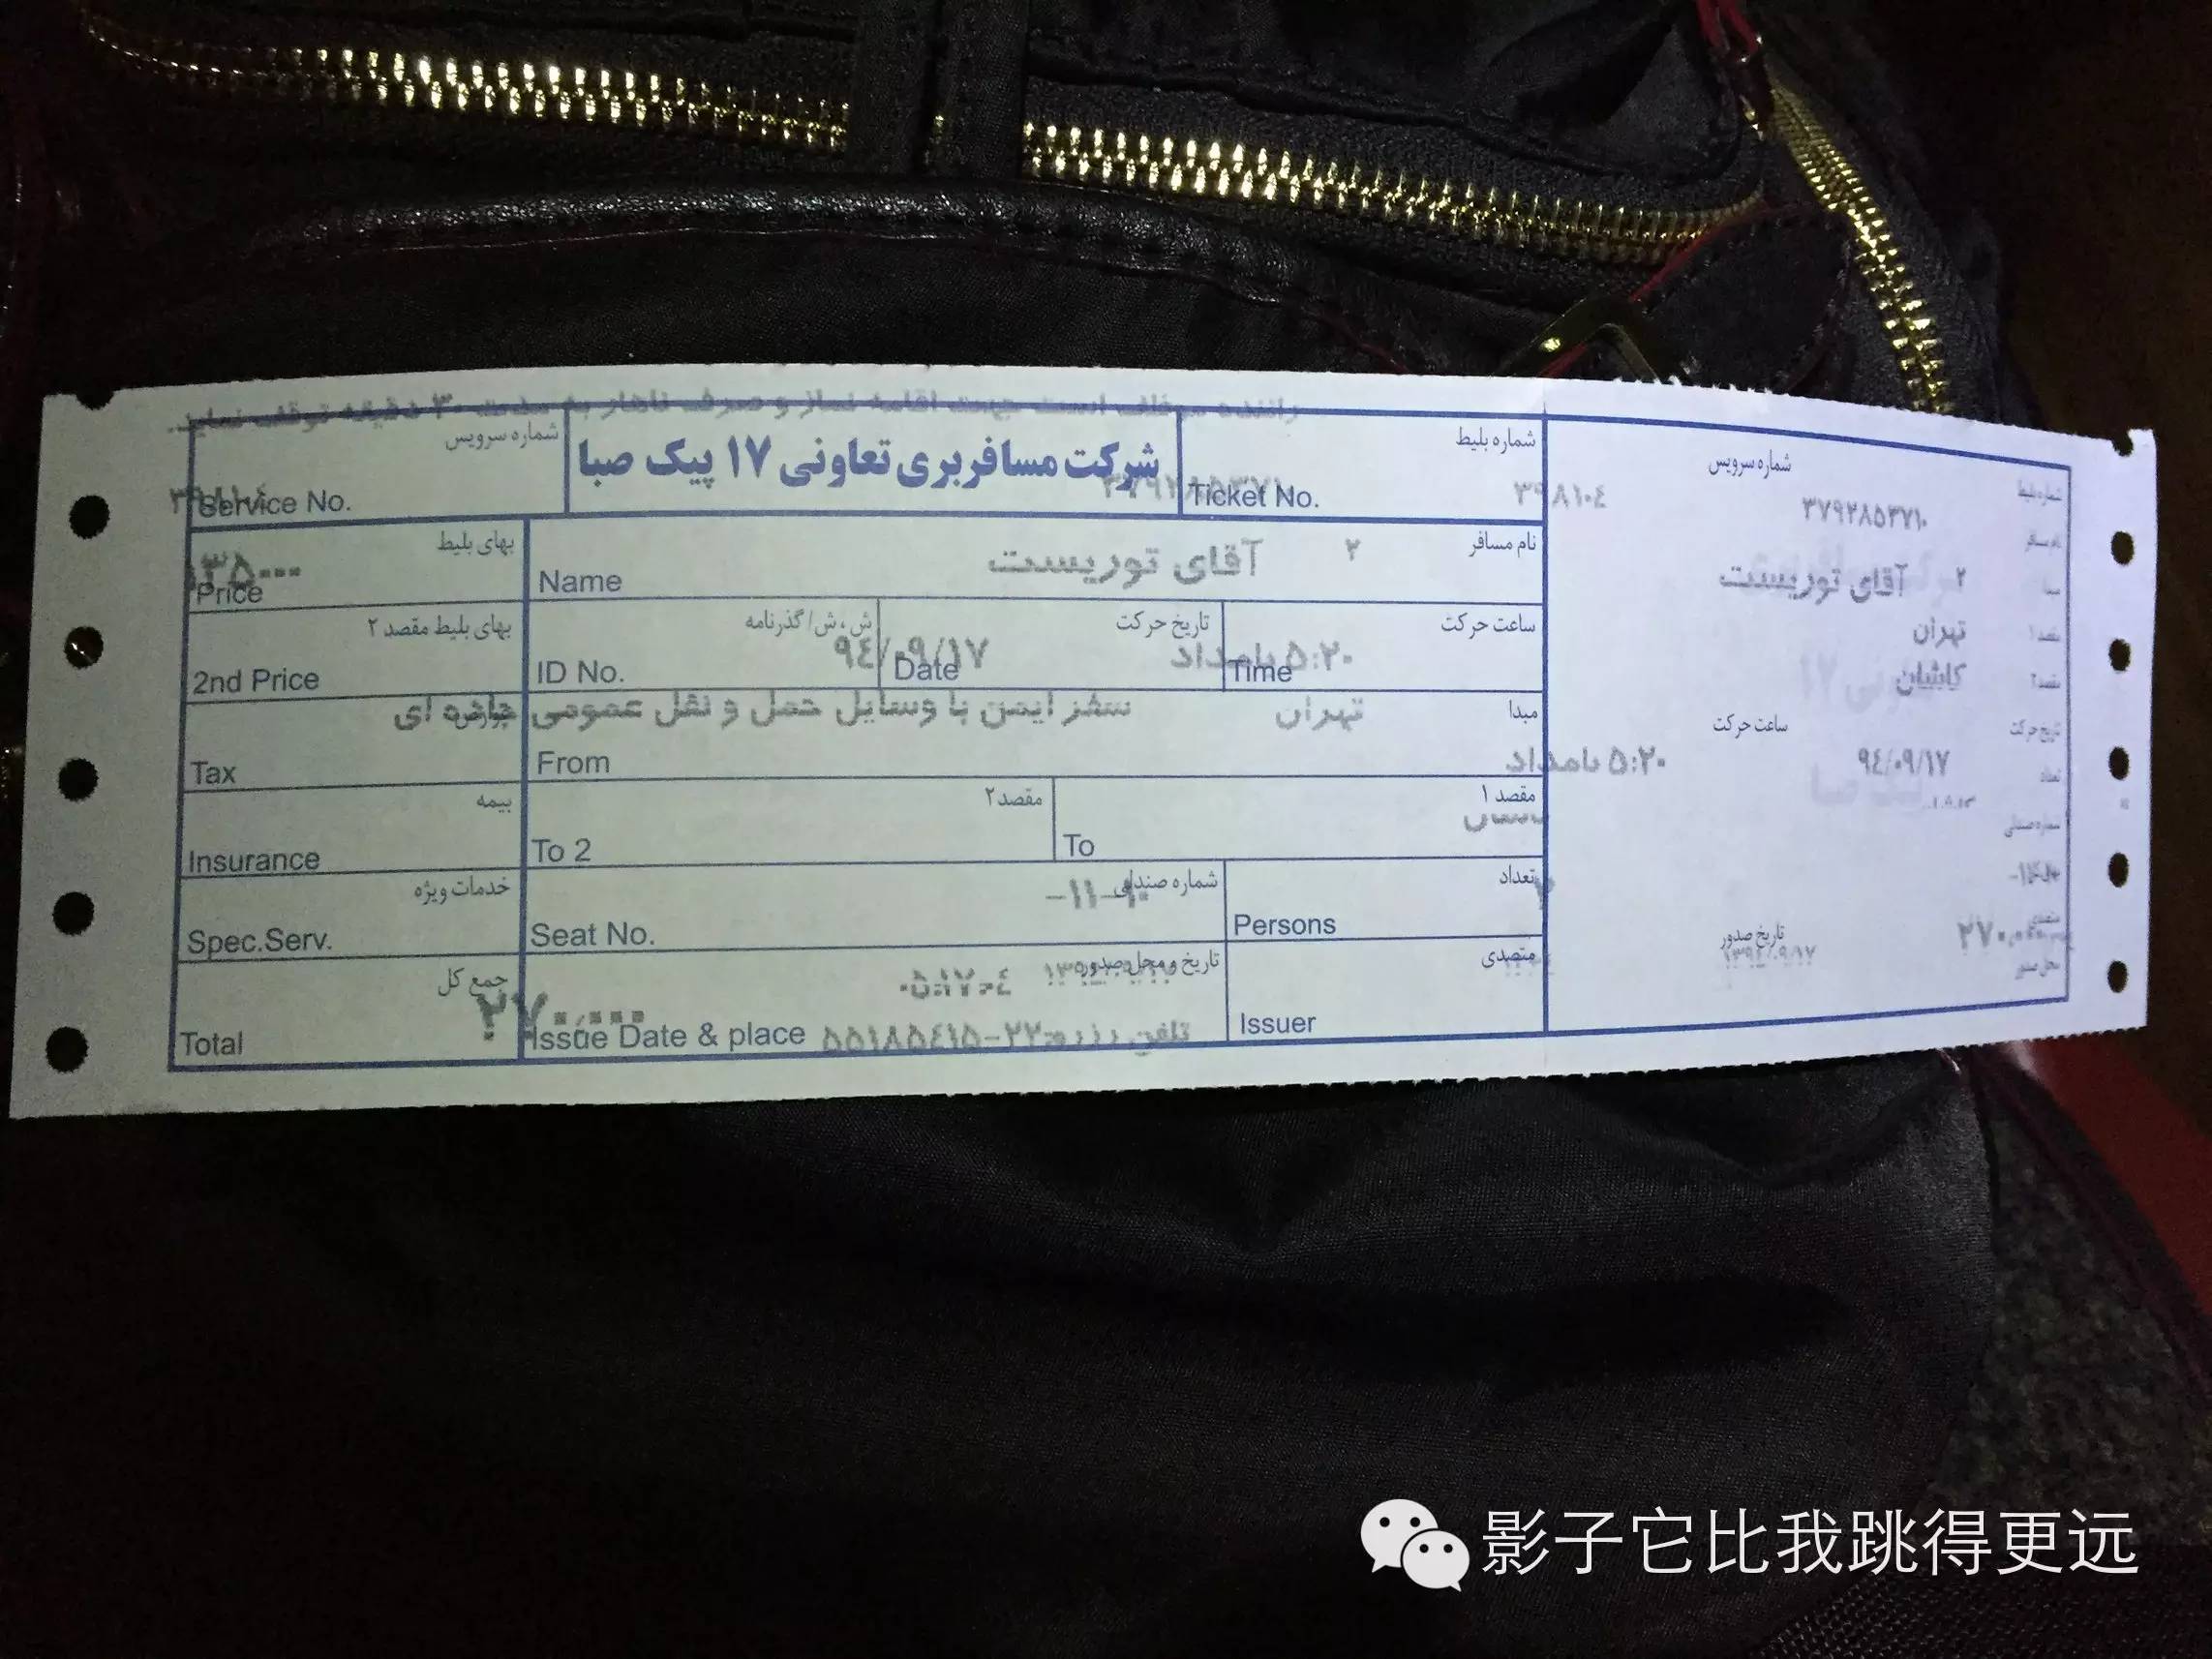 راننده موظف است جهت اقامه نماز و صرف ناهار به مدت ۳۰ دقیقه توقف نماید.
شماره سرویس
Service No.
شرکت مسافربری تعاونی ۱۷ پیک صبا
شماره بلیط
Ticket No.
۳۹۸۱۰۴
بهای بلیط
Price
۱۳۵۰۰۰
نام مسافر
Name
۲ آقای توریست
بهای بلیط مقصد ۲
2nd Price
ش.ش/گذرنامه
ID No.
تاریخ حرکت
Date
۹۴/۰۹/۱۷
ساعت حرکت
Time
۵:۲۰ بامداد
Tax
مبدا
From
تهران
سفر ایمن با وسایل حمل و نقل عمومی جاده ای
بیمه
Insurance
مقصد ۲
To 2
مقصد ۱
To
خدمات ویژه
Spec.Serv.
شماره صندلی
Seat No.
تعداد
Persons
جمع کل
Total
۲۷۰,۰۰۰
تاریخ و محل صدور
Issue Date & place
تلفن رزرو:۲۲-۵۵۱۸۵۴۱۵
متصدی
Issuer
شماره سرویس
شماره بلیط
۳۷۹۲۸۵۳۷۱۰
نام مسافر
۲ آقای توریست
تهران
مقصد ۱
کاشان
مقصد ۲
ساعت حرکت
تاریخ حرکت
۹۴/۰۹/۱۷
۵:۲۰ بامداد
تعداد
شماره صندلی
متصدی
تاریخ صدور
۱۳۹۴/۰۹/۱۷
محل صدور
影子它比我跳得更远